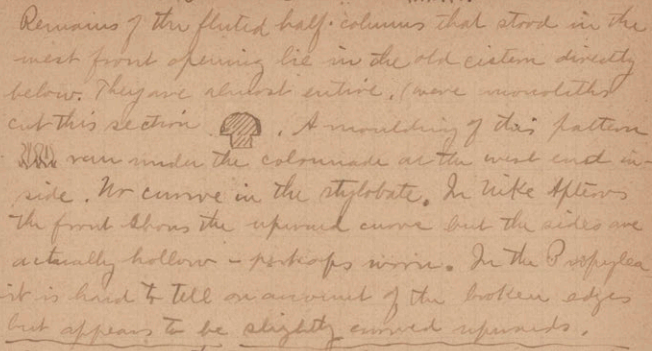 Remains of the fluted half-columns that stood in the
west front opening lie in the old cistern directly
below. They are almost entire. (were monoliths
cut this section . A moulding of this pattern
run under the colonnade at the west end in-
side. No curve in the stylobate. In Nike Apteros
the front shows the upward curve but the sides are
actually hollow - perhaps worn. In the Propylea
it is hard to tell on account of the broken edges
but appears to be slightly curved upwards.